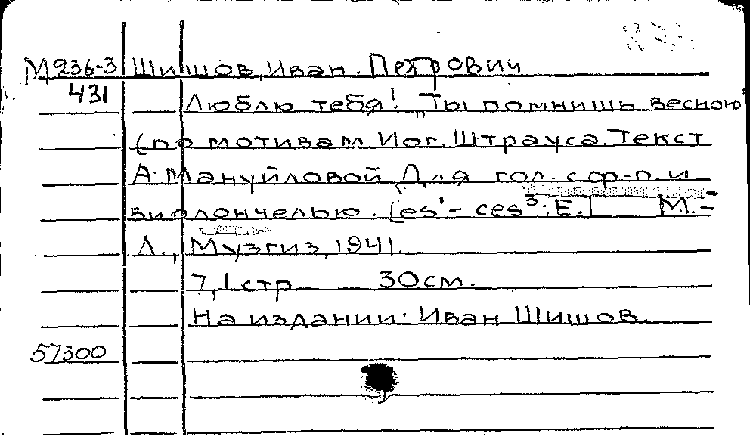 М236-3 Шишов, Иван Петрович
431 Люблю тебя! „Ты помнишь весною
(по мотивам Иог. Штрауса. Текст
А. Мануйловой. Для гол. с ф-п. и
виолончелью. [es¹- ces³; E.] М.-
Л., Музгиз, 1941.
7, 1 стр. 30см.
На издании: Иван Шишов.
57300